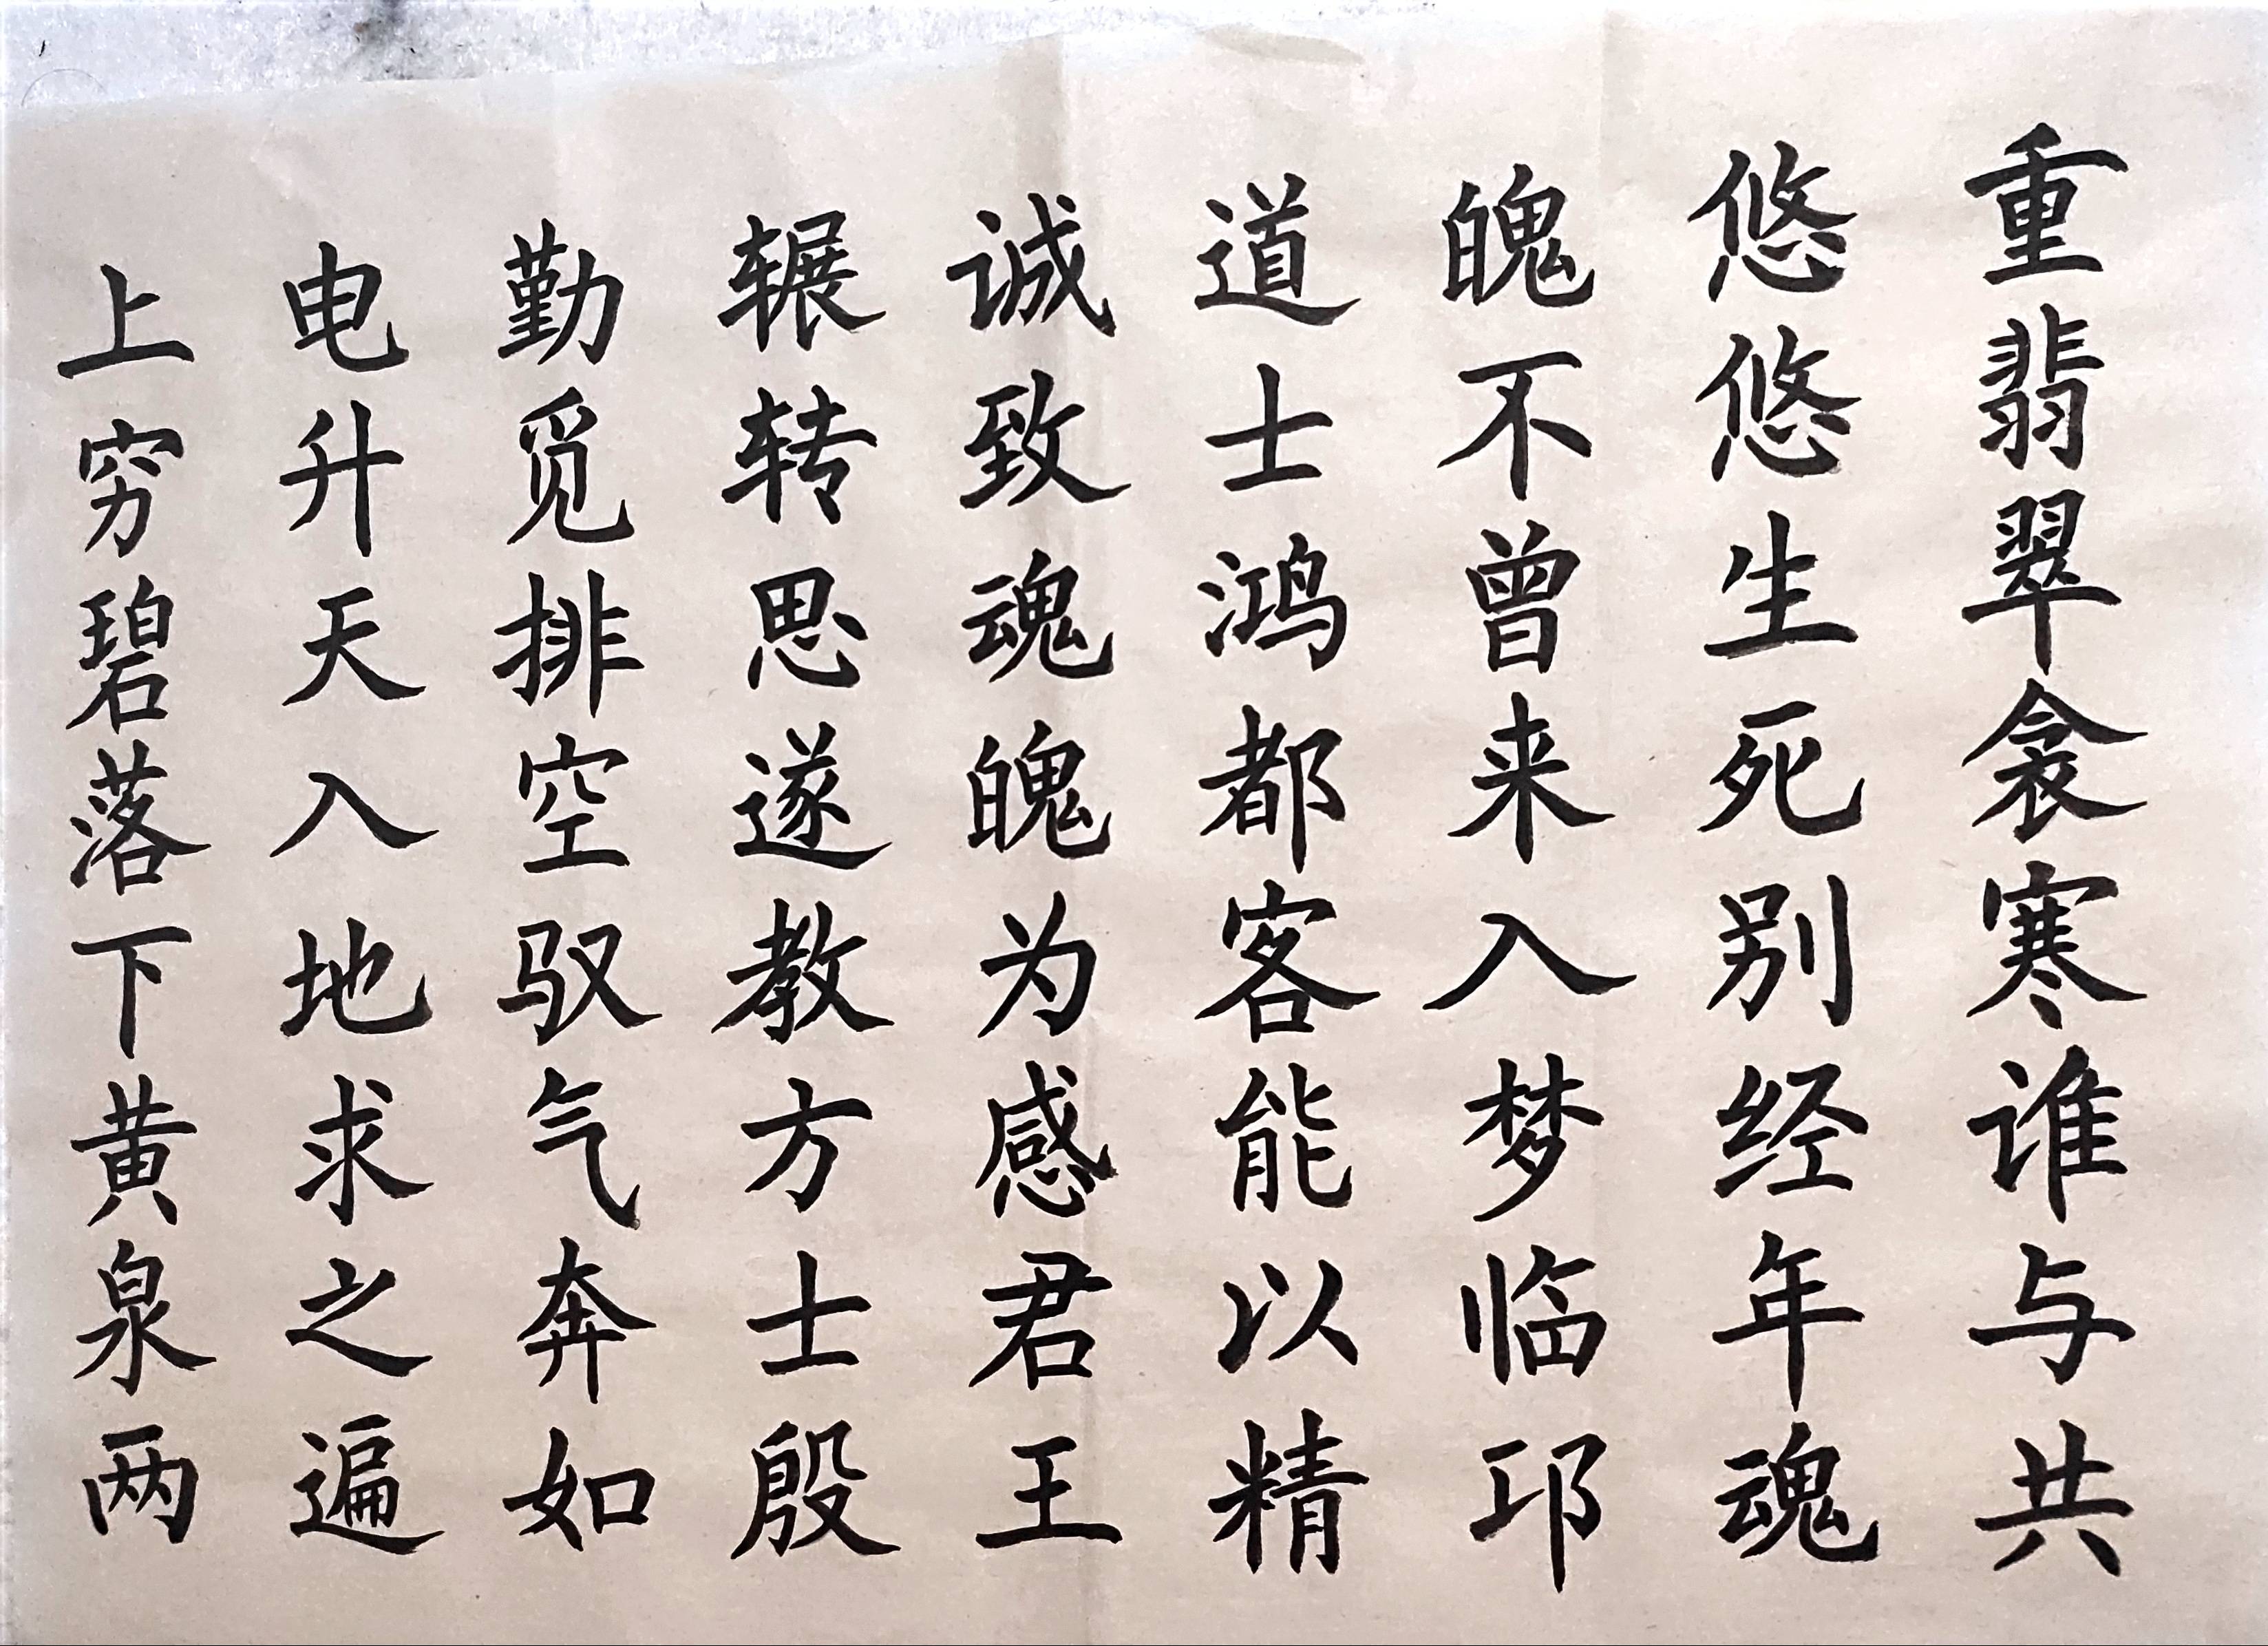 重翡翠衾寒谁与共
悠悠生死别经年魂
魄不曾来入梦临邛
道士鸿都客能以精
诚致魂魄为感君王
辗转思遂教方士殷
勤觅排空驭气奔如
电升天入地求之遍
上穷碧落下黄泉两